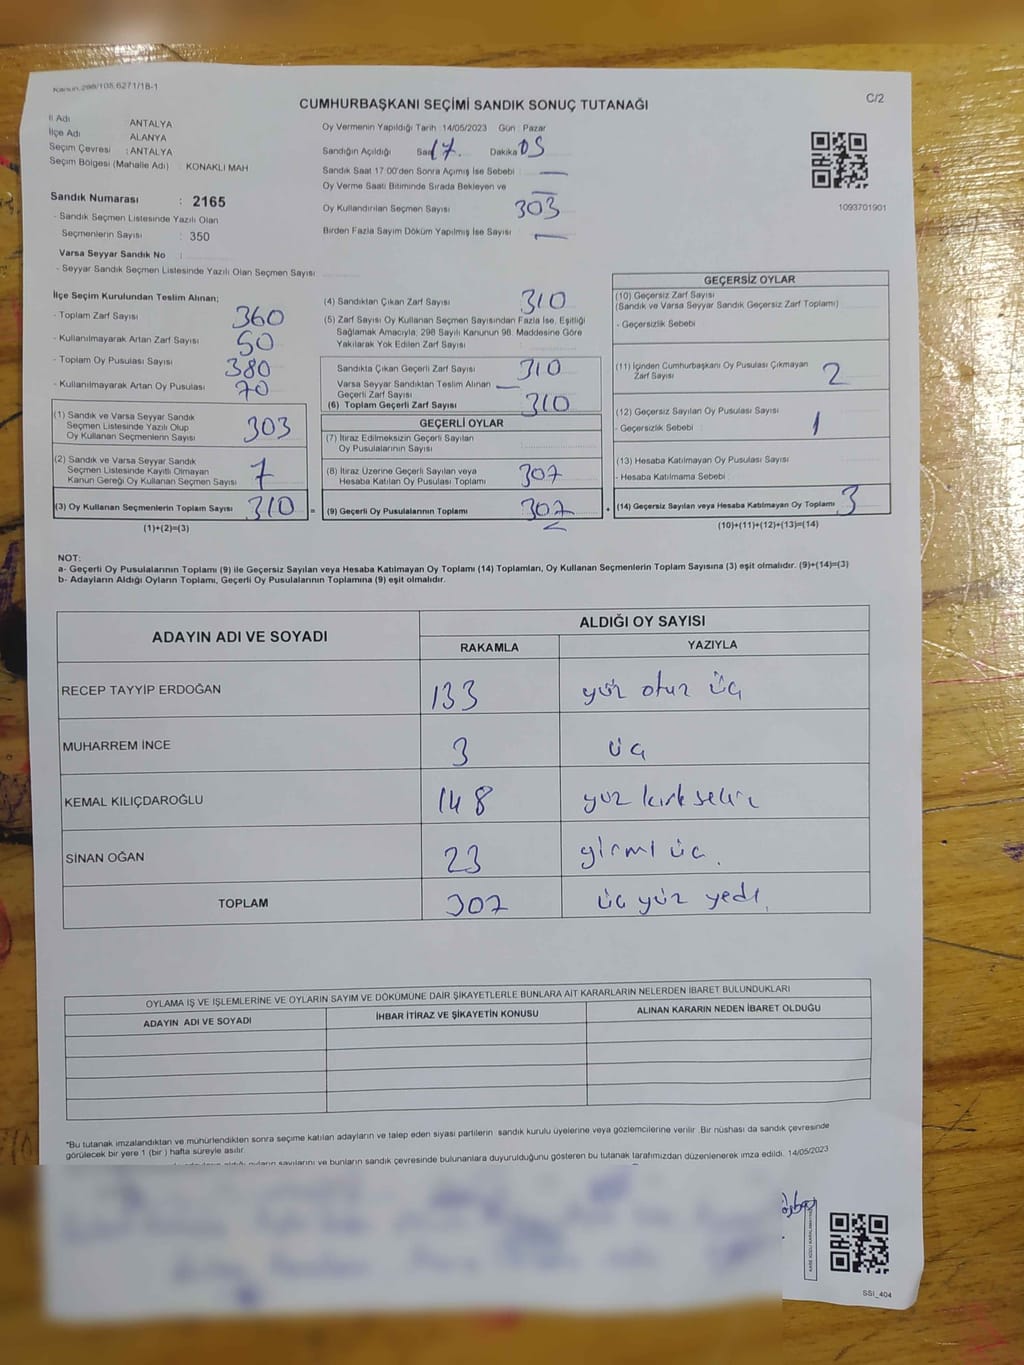 Kanun:298/105,6271/18-1
CUMHURBAŞKANI SEÇİMİ SANDIK SONUÇ TUTANAĞI
C/2
İl Adı ANTALYA
İlçe Adı ALANYA
Seçim Çevresi : ANTALYA
Seçim Bölgesi (Mahalle Adı) : KONAKLI MAH
Oy Vermenin Yapıldığı Tarih 14/05/2023 Gün : Pazar
Sandığın Açıldığı Saat 17. Dakika 05
Sandık Saat 17:00'den Sonra Açımış İse Sebebi : —
Oy Verme Saati Bitiminde Sırada Bekleyen ve
Oy Kullandırılan Seçmen Sayısı 303
Birden Fazla Sayım Döküm Yapılmış İse Sayısı —
1093701901
Sandık Numarası : 2165
- Sandık Seçmen Listesinde Yazılı Olan
Seçmenlerin Sayısı : 350
Varsa Seyyar Sandık No :
- Seyyar Sandık Seçmen Listesinde Yazılı Olan Seçmen Sayısı:
İlçe Seçim Kurulundan Teslim Alınan;
- Toplam Zarf Sayısı 360
- Kullanılmayarak Artan Zarf Sayısı 50
- Toplam Oy Pusulası Sayısı 380
- Kullanılmayarak Artan Oy Pusulası 70
(1) Sandık ve Varsa Seyyar Sandık
Seçmen Listesinde Yazılı Olup
Oy Kullanan Seçmenlerin Sayısı 303
(2) Sandık ve Varsa Seyyar Sandık
Seçmen Listesinde Kayıtlı Olmayan
Kanun Gereği Oy Kullanan Seçmen Sayısı 7
(3) Oy Kullanan Seçmenlerin Toplam Sayısı 310 =
(1)+(2)=(3)
(4) Sandıktan Çıkan Zarf Sayısı 310
(5) Zarf Sayısı Oy Kullanan Seçmen Sayısından Fazla İse, Eşitliği
Sağlamak Amacıyla; 298 Sayılı Kanunun 98. Maddesine Göre
Yakılarak Yok Edilen Zarf Sayısı :
Sandıkta Çıkan Geçerli Zarf Sayısı 310
Varsa Seyyar Sandıktan Teslim Alınan —
Geçerli Zarf Sayısı
(6) Toplam Geçerli Zarf Sayısı 310
GEÇERLİ OYLAR
(7) İtiraz Edilmeksizin Geçerli Sayılan
Oy Pusulalarının Sayısı :
(8) İtiraz Üzerine Geçerli Sayılan veya
Hesaba Katılan Oy Pusulası Toplamı 307
(9) Geçerli Oy Pusulalarının Toplamı 307 +
GEÇERSİZ OYLAR
(10) Geçersiz Zarf Sayısı
(Sandık ve Varsa Seyyar Sandık Geçersiz Zarf Toplamı)
- Geçersizlik Sebebi
(11) İçinden Cumhurbaşkanı Oy Pusulası Çıkmayan
Zarf Sayısı 2
(12) Geçersiz Sayılan Oy Pusulası Sayısı
- Geçersizlik Sebebi : 1
(13) Hesaba Katılmayan Oy Pusulası Sayısı
- Hesaba Katılmama Sebebi :
(14) Geçersiz Sayılan veya Hesaba Katılmayan Oy Toplamı 3
(10)+(11)+(12)+(13)=(14)
NOT:
a- Geçerli Oy Pusulalarının Toplamı (9) ile Geçersiz Sayılan veya Hesaba Katılmayan Oy Toplamı (14) Toplamları, Oy Kullanan Seçmenlerin Toplam Sayısına (3) eşit olmalıdır. (9)+(14)=(3)
b- Adayların Aldığı Oyların Toplamı, Geçerli Oy Pusulalarının Toplamına (9) eşit olmalıdır.
ADAYIN ADI VE SOYADI ALDIĞI OY SAYISI
RAKAMLA YAZIYLA
RECEP TAYYİP ERDOĞAN 133 yüz otuz üç
MUHARREM İNCE 3 üç
KEMAL KILIÇDAROĞLU 148 yüz kırk sekiz
SİNAN OĞAN 23 yirmi üç.
TOPLAM 307 üç yüz yedi
OYLAMA İŞ VE İŞLEMLERİNE VE OYLARIN SAYIM VE DÖKÜMÜNE DAİR ŞİKAYETLERLE BUNLARA AİT KARARLARIN NELERDEN İBARET BULUNDUKLARI
ADAYIN ADI VE SOYADI İHBAR İTİRAZ VE ŞİKAYETİN KONUSU ALINAN KARARIN NEDEN İBARET OLDUĞU
*Bu tutanak imzalandıktan ve mühürlendikten sonra seçime katılan adayların ve talep eden siyasi partilerin sandık kurulu üyelerine veya gözlemcilerine verilir .Bir nüshası da sandık çevresinde
görülecek bir yere 1 (bir ) hafta süreyle asılır.
oyların sayılarını ve bunların sandık çevresinde bulunanlara duyurulduğunu gösteren bu tutanak tarafımızdan düzenlenerek imza edildi. 14/05/2023
SSI_404